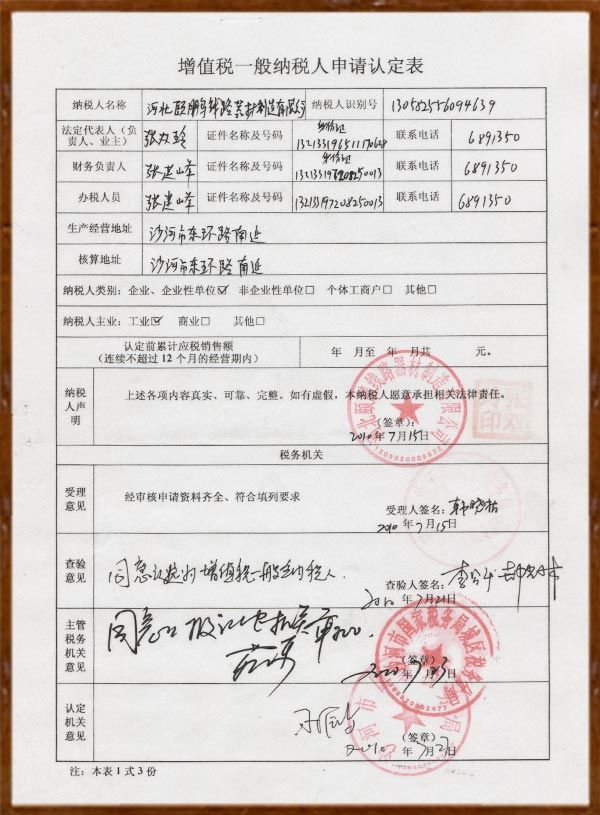 增值税一般纳税人申请认定表
纳税人名称 河北 鹏 线路器材制造有限公司 纳税人识别号 130582556094639
法定代表人（负责人、业主） 张双玲 证件名称及号码 身份证 联系电话 6891350
财务负责人 张建峰 证件名称及号码 身份证 132133197208250013 联系电话 6891350
办税人员 张建峰 证件名称及号码 132133197208250013 联系电话 6891350
生产经营地址 沙河市东环路南延
核算地址 沙河市东环路南延
纳税人类别：企业、企业性单位☑ 非企业性单位□ 个体工商户□ 其他□
纳税人主业：工业☑ 商业□ 其他□
认定前累计应税销售额
（连续不超过 12 个月的经营期内） 年 月至 年 月共 元。
纳税人声明 上述各项内容真实、可靠、完整。如有虚假，本纳税人愿意承担相关法律责任。
（签章）：
2010 年 7 月 15 日
税务机关
受理意见 经审核申请资料齐全、符合填列要求
受理人签名：韩晓
2010 年 7 月 15 日
查验意见 同意认定为增值税一般纳税人.
查验人签名：
2010 年 7 月 21 日
主管税务机关意见 同意
（签章）
认定机关意见
（签章）
2010 年 7 月 27 日
注：本表 1 式 3 份